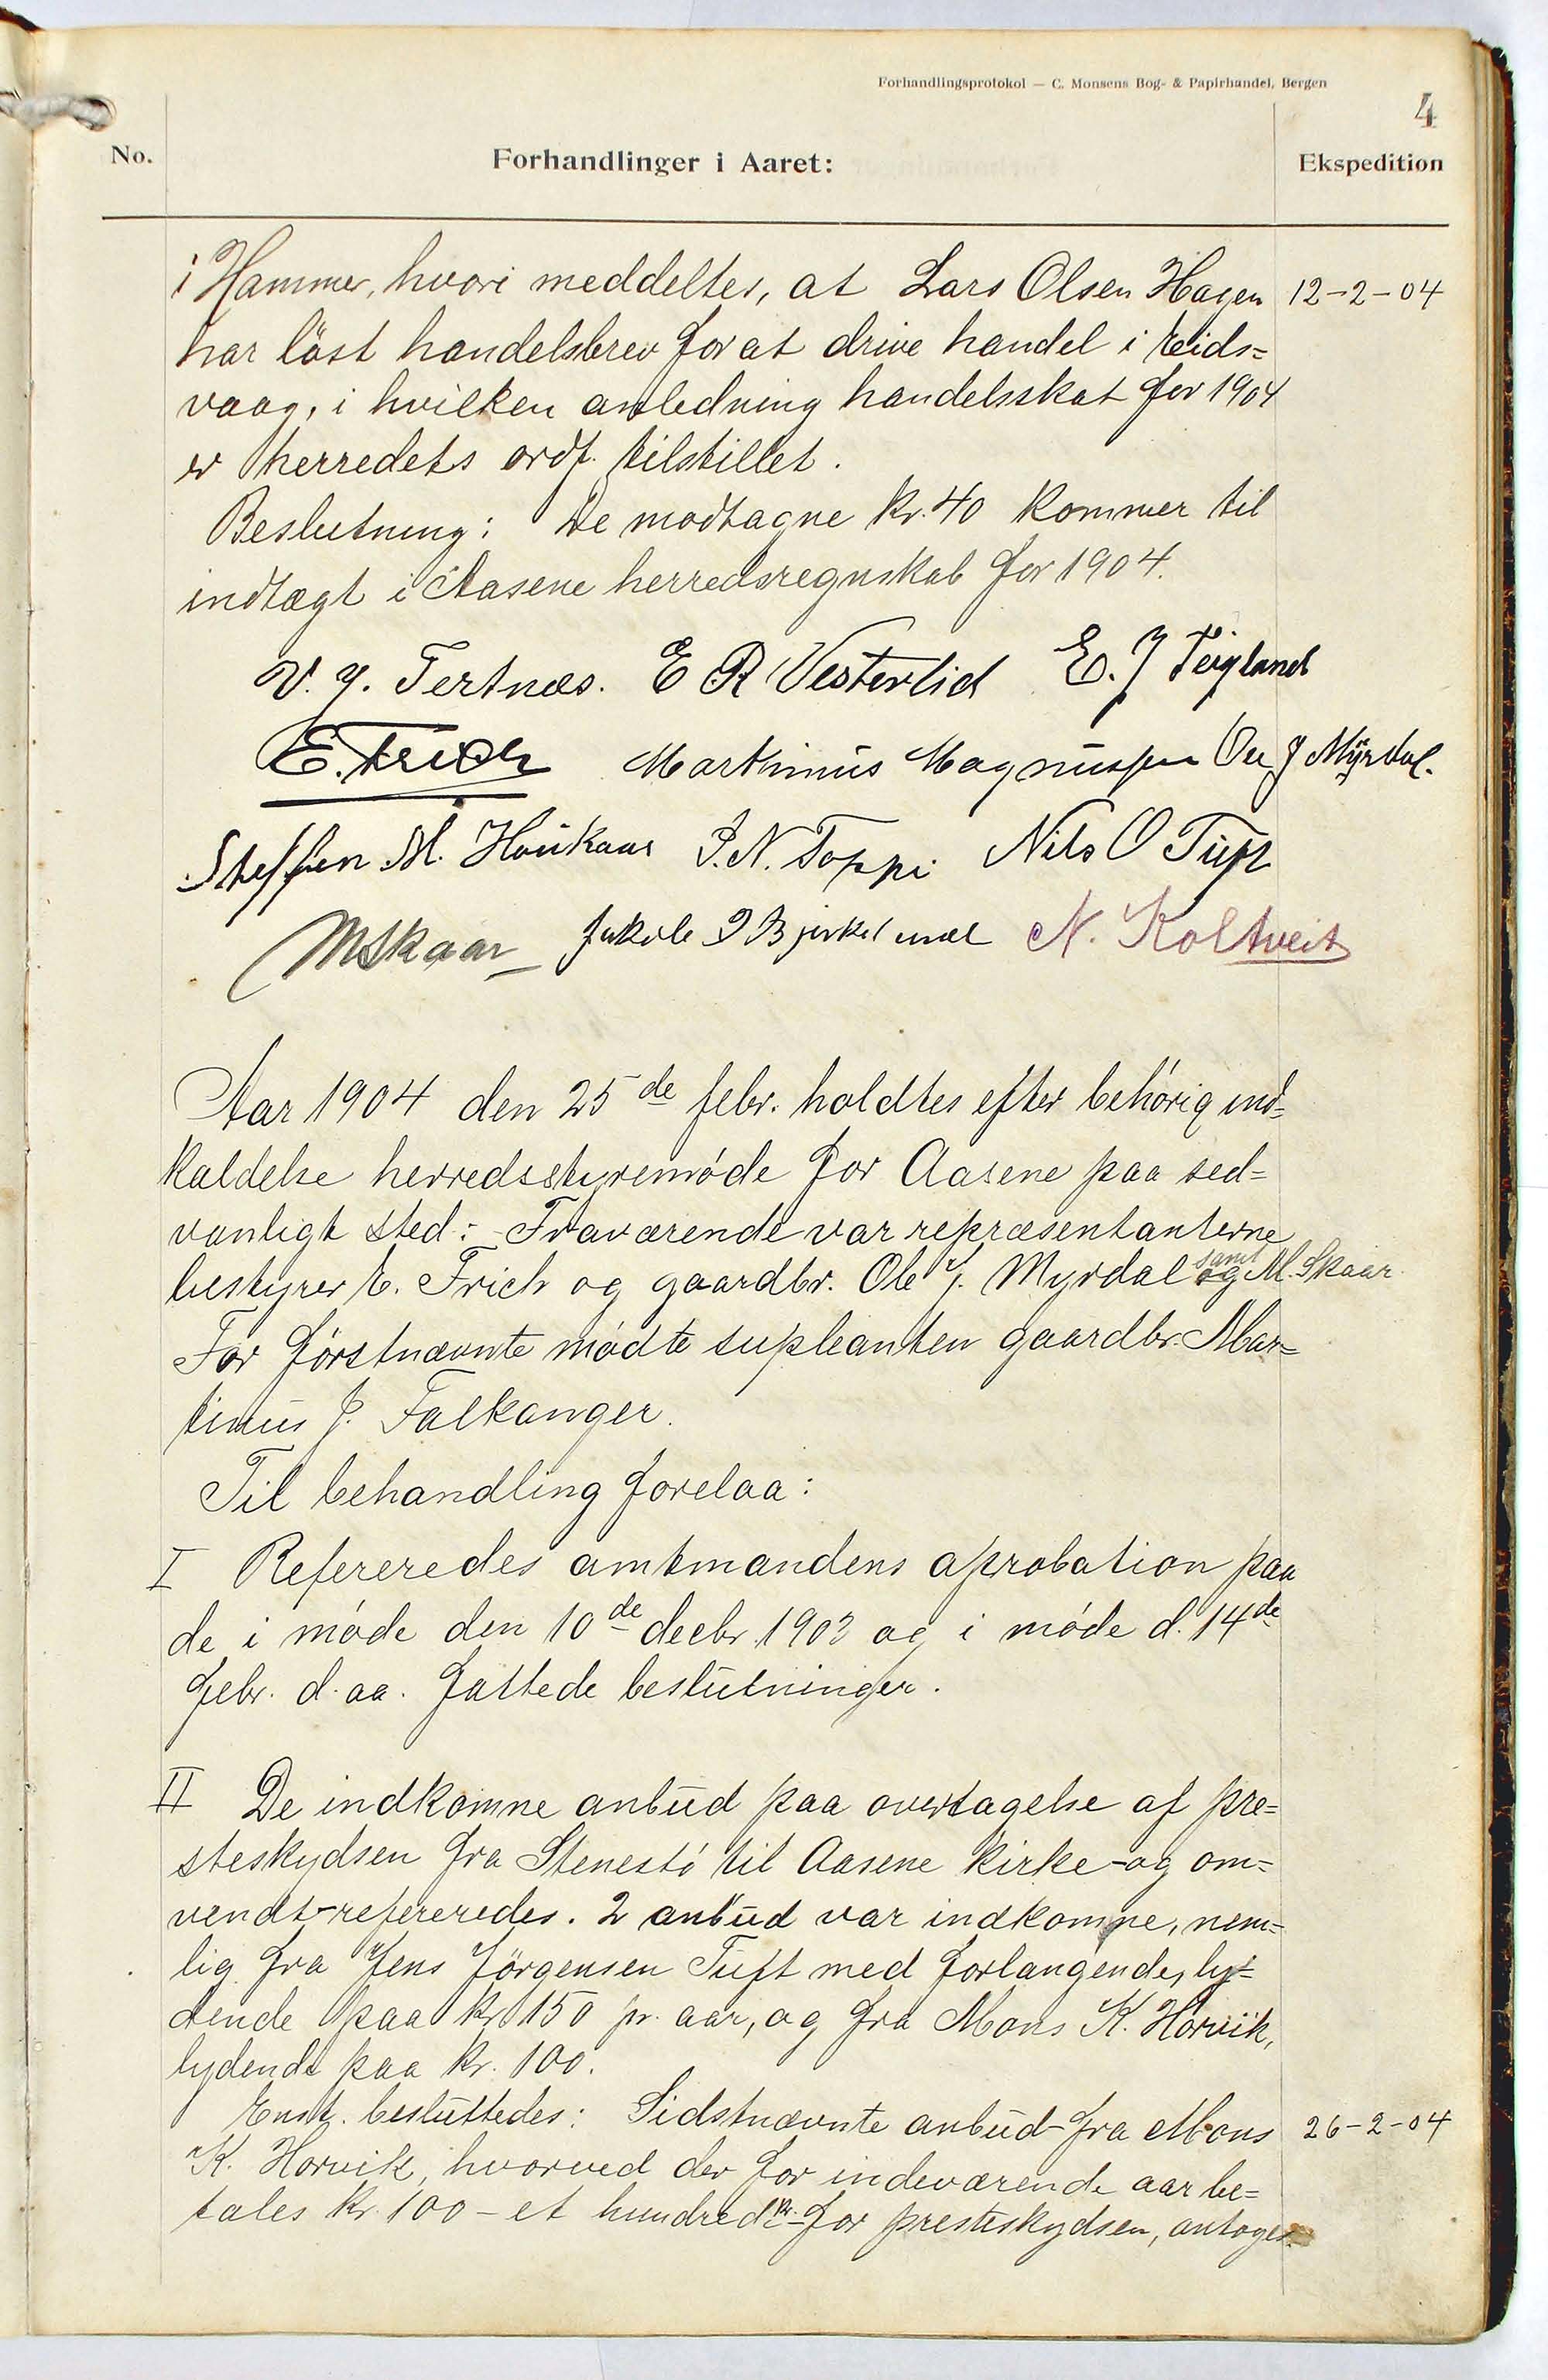 Forhandlingsprotokol — C. Monsens Bog- & Papirhandel, Bergen
4
No.
Forhandlinger i Aaret:
Ekspedition
i Hammer, hvori meddeltes, at Lars Olsen Hagen 12-2-04
har löst handelsbrev for at drive handel i Eids=
vaag, i hvilken anledning handelsskat for 1904
er herredets ordf. tilstillet.
Beslutning: De modtagne kr. 40 kommer til
indtægt i Aasene herredsregnskab for 1904.
V. J. Tertnæs. E R Vesterlid E. J Teigland
E. Frich Martinius Magnussen Ole J Myrdal.
Steffen M. Haukaas P. N. Toppe Nils O Tuft
MSkaar Jakob J Bjirkelund N. Koltveit
Aar 1904 den 25de febr. holdtes efter behörig ind=
kaldelse herredsstyremöde for Aasene paa sed=
vanligt sted: - Fraværende var repræsentanterne
bestyrer E. Frich og gaardbr. Ole J. Myrdal samt M. Skaar
For förstnævnte mödte supleanten gaardbr. Mar=
tinus J. Falkanger.
Til behandling forelaa:
I Refereredes amtmandens aprobation paa
de i möde den 10de decbr. 1903 og i möde d. 14de
febr. d. aa. fattede beslutninger.
II De indkomne anbud paa overtagelse af pre=
steskydsen fra Stenestö til Aasene kirke - og om=
vendt - refereredes. 2 anbud var indkomne, nem=
lig fra Jens Jörgensen Tuft med forlangende, ly=
dende paa kr. 150 pr. aar, og fra Mons K. Horvik,
lydende paa kr. 100.
Enst. besluttedes: Sidstnævnte anbud fra Mons 26-2-04
K. Horvik, hvorved der for indeværende aar be=
tales kr. 100 - et hundrede kr. - for presteskydsen, antoges.